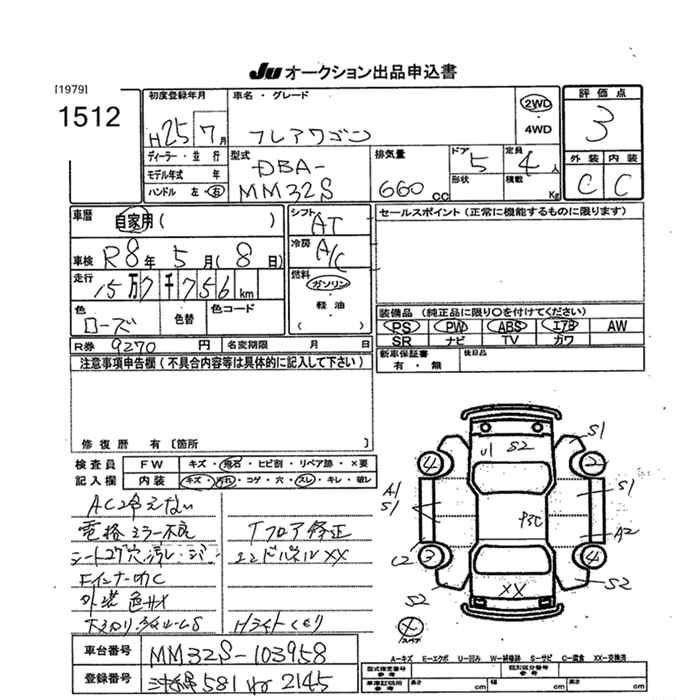 JU オークション出品申込書
[1979]
1512
初度登録年月
H25年 7月
車名・グレード
フレアワゴン
2WD
4WD
評価点
3
ディーラー・並行
モデル年式 年
ハンドル 左 右
型式
DBA-
MM32S
排気量
660 cc
ドア 5
形状
定員 4 人
積載 Kg
外装 内装
C C
車歴 自家用 ( )
シフト AT
セールスポイント (正常に機能するものに限ります)
車検 R8年 5月 (8日)
冷房 A/C
走行 15万7千756km
燃料 ガソリン・軽油 ( )
色 ローズ
色替
色コード
装備品 (純正品に限り○を付けてください)
PS PW ABS エアB AW
SR ナビ TV カワ
R券 9270 円
名変期限 月 日
新車保証書 有・無
後日品
注意事項申告欄 (不具合内容等は具体的に記入して下さい)
修復歴 有 [箇所 ]
検査員
記入欄
FW キズ・飛石・ヒビ割・リペア跡・×要
内装 キズ・汚れ・コゲ・穴・スレ・キレ・破レ
AC冷えない
電格ミラー不良
Tフロア修正
エンドパネルXX
外装色
Hライトくもり
U1
S2
S1
4
2
A1
S1
S1
A2
C2
3
4
S2
XX
S2
スペア
A-キズ E-エクボ U-凹み W-補修跡 S-サビ C-腐食 XX-交換済
車台番号 MM32S-103958
登録番号 581 2145
型式指定番号
参考
類別区分番号
参考
長さ cm 幅 cm 高さ cm